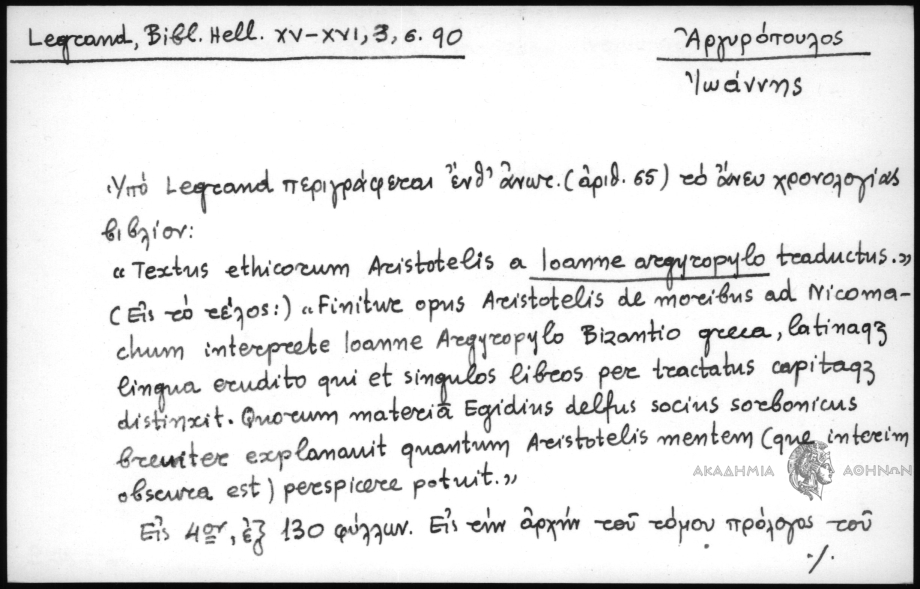 Legrand, Bibl. Hell. XV-XVI, 3, σ. 90
Ἀργυρόπουλος
Ἰωάννης
Ὑπό Legrand περιγράφεται ἔνθ' ἄνωτ. (ἀριθ. 65) τό ἄνευ χρονολογίας
βιβλίον:
« Textus ethicorum Aristotelis a Ioanne argyropylo traductus.»
(Εἰς τό τέλος:) « Finitur opus Aristotelis de moribus ad Nicoma-
chum interprete Ioanne Argyropylo Bizantio greca, latinaqꝫ
lingua erudito qui et singulos libros per tractatus capitaqꝫ
distinxit. Quorum materiā Egidius delfus socius sorbonicus
breuiter explanauit quantum Aristotelis mentem (que interim
obscura est) perspicere potuit.»
Εἰς 4ον, ἐξ 130 φύλλων. Εἰς τήν ἀρχήν τοῦ τόμου πρόλογος τοῦ
./.
ΑΚΑΔΗΜΙΑ ΑΘΗΝΩΝ